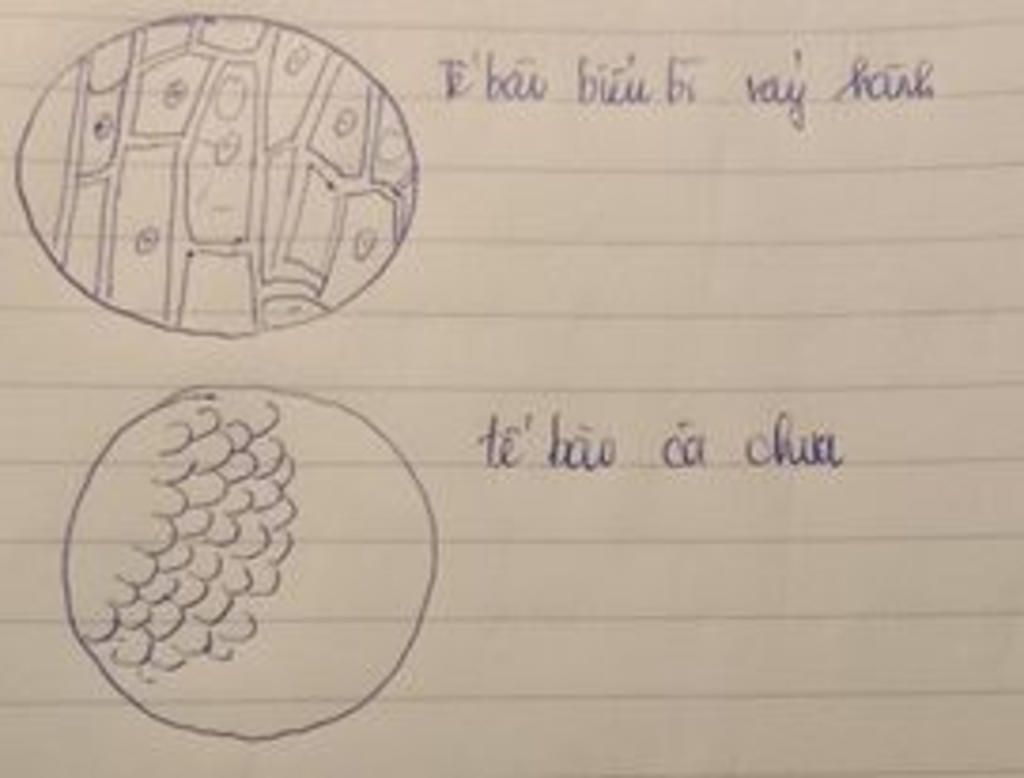 Tế bào biểu bì vảy hành
tế bào cà chua